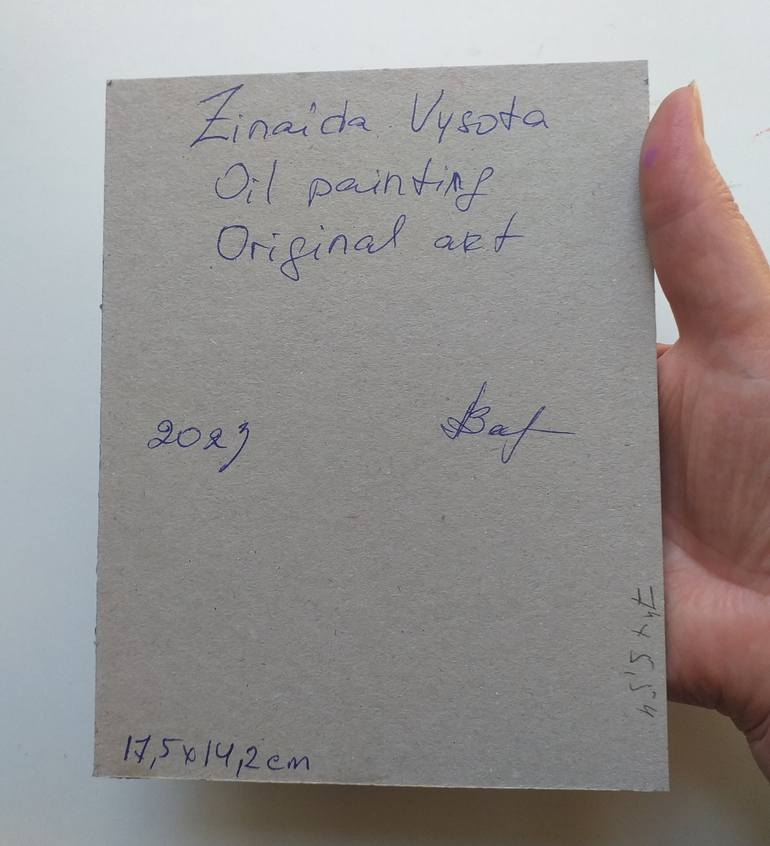 Zinaida Vysota
Oil painting
Original art
2023
17,5x14,2cm